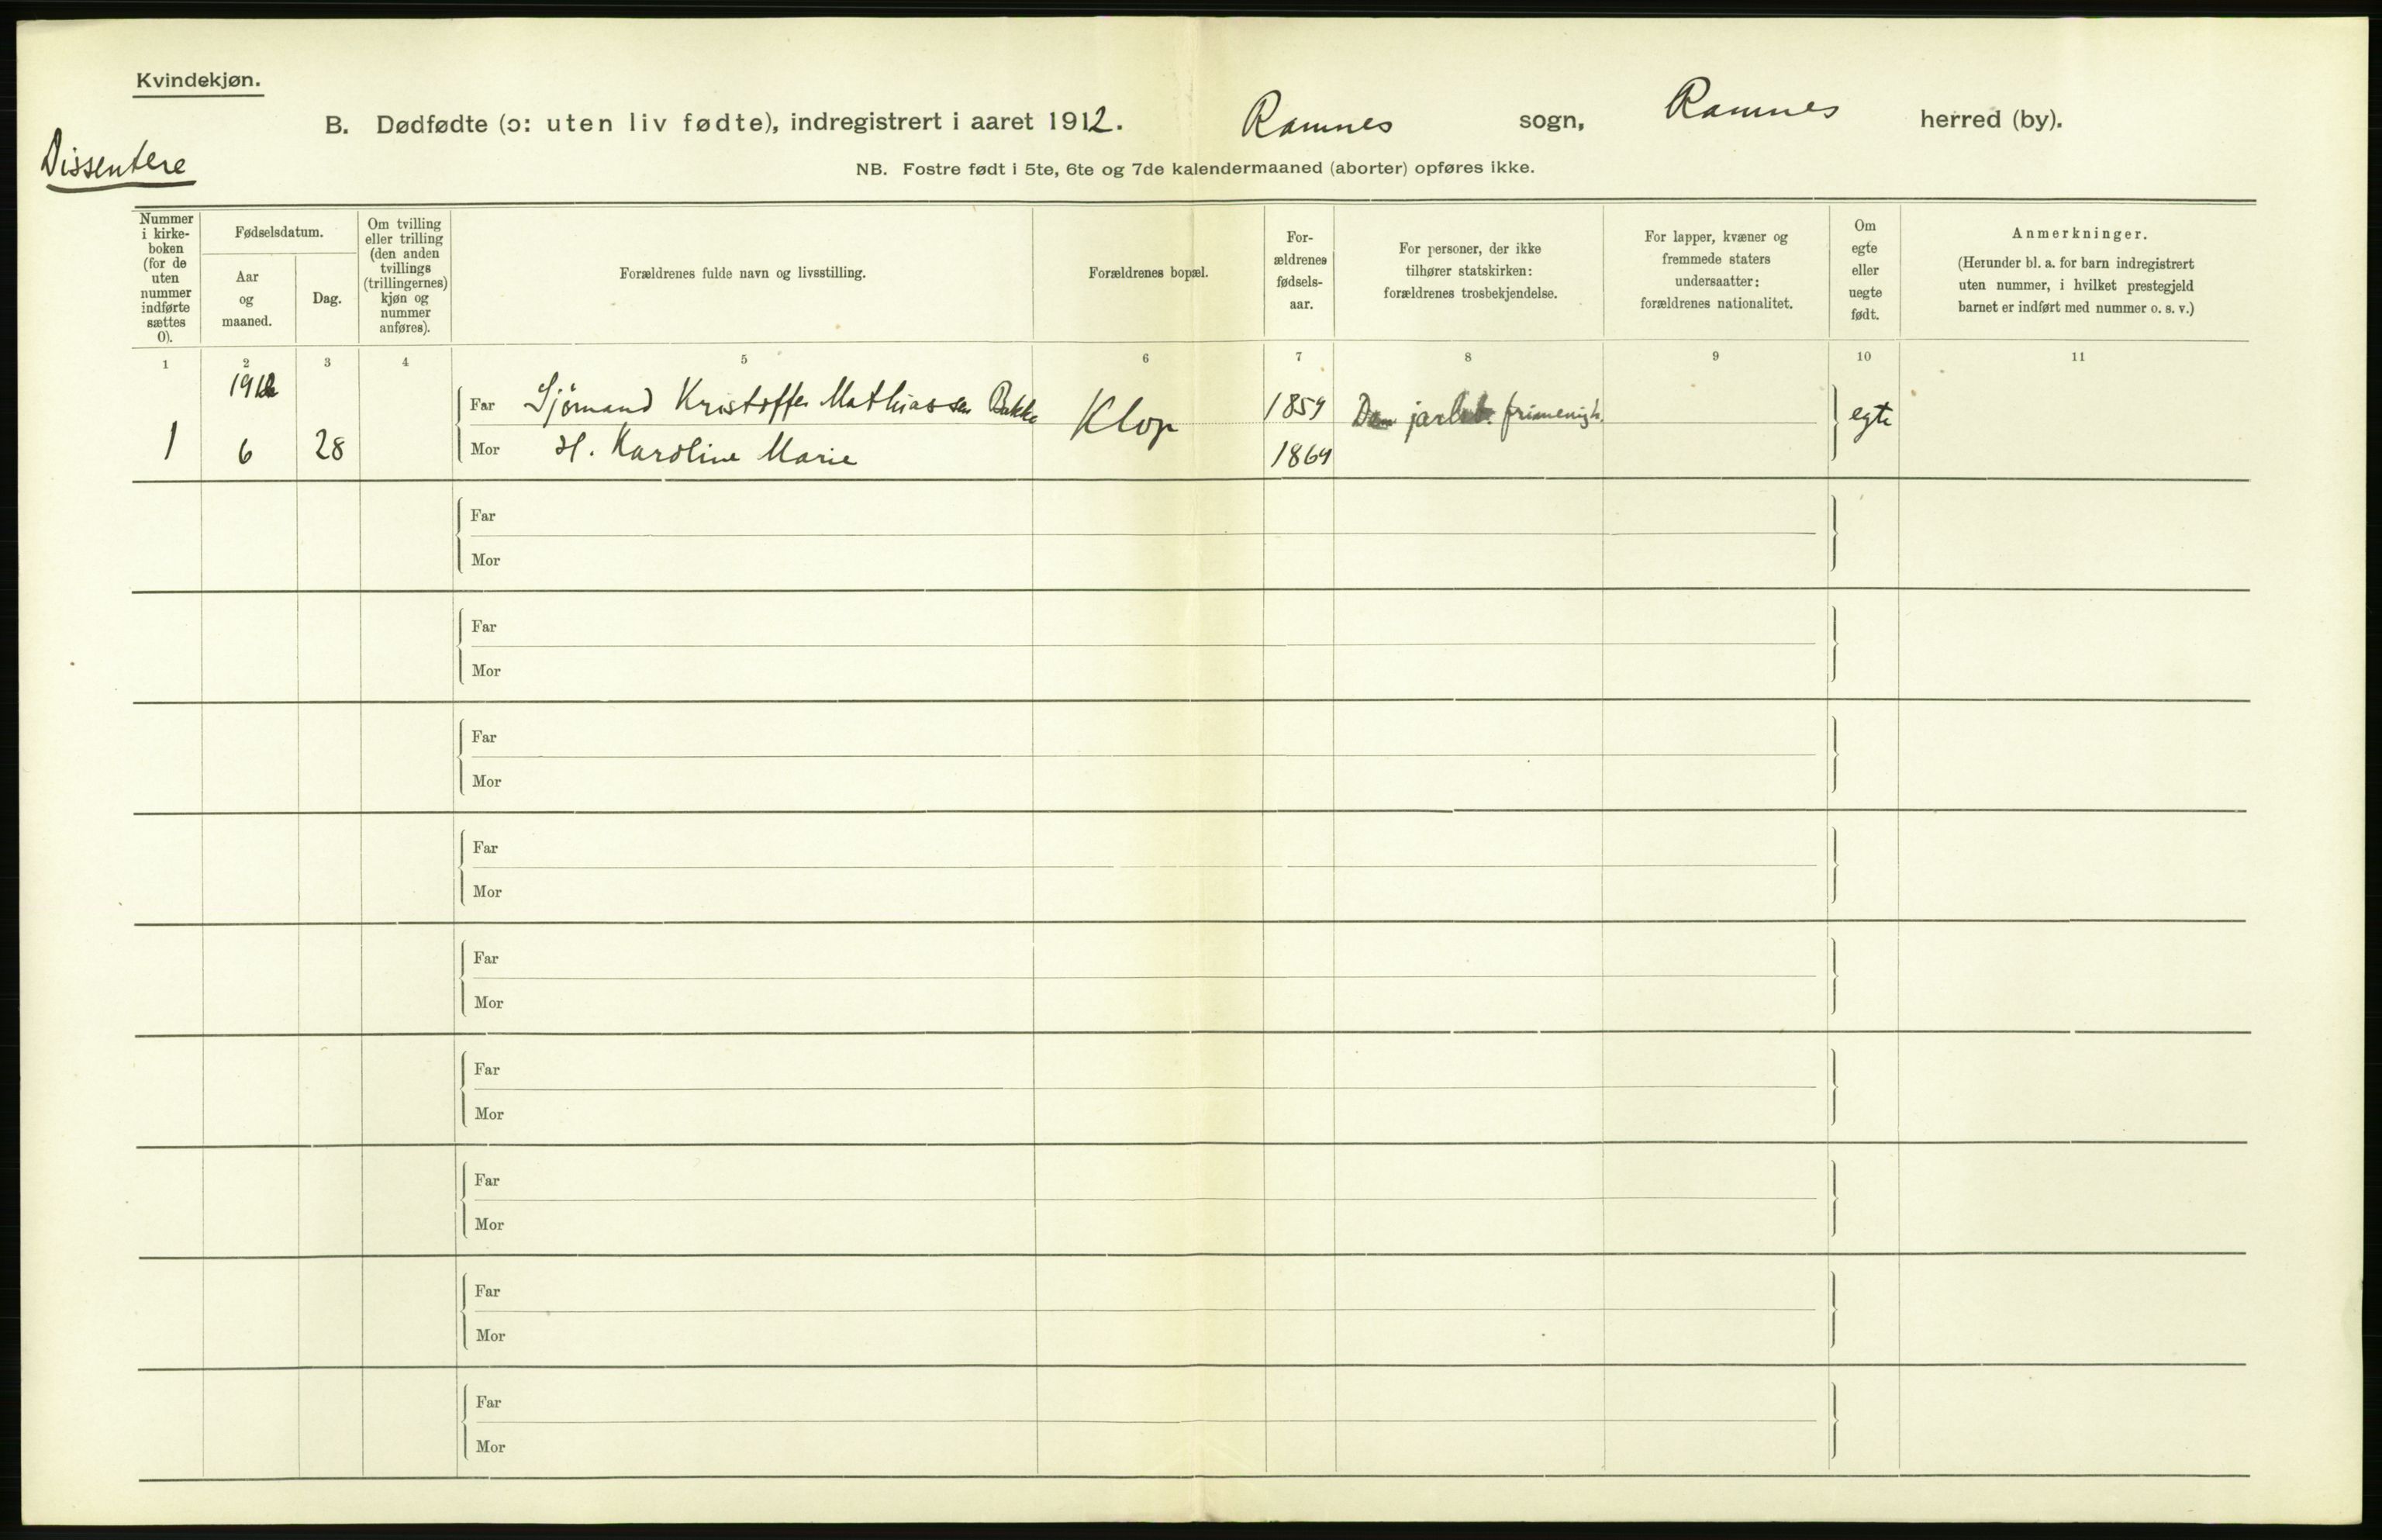 Kvindekjøn.
B. Dødfødte (ɔ: uten liv fødte), indregistrert i aaret 1912. Ramnes sogn, Ramnes herred (by).
Dissentere
NB. Fostre født i 5te, 6te og 7de kalendermaaned (aborter) opføres ikke.
Nummer
i kirke-
boken
(for de
uten
nummer
indførte
sættes
0).
Fødselsdatum.
Aar
og
maaned.
Dag.
Om tvilling
eller trilling
(den anden
tvillings
(trillingernes)
kjøn og
nummer
anføres).
Forældrenes fulde navn og livsstilling.
Forældrenes bopæl.
For-
ældrenes
fødsels-
aar.
For personer, der ikke
tilhører statskirken:
forældrenes trosbekjendelse.
For lapper, kvæner og
fremmede staters
undersaatter:
forældrenes nationalitet.
Om
egte
eller
uegte
født.
Anmerkninger.
(Herunder bl. a. for barn indregistrert
uten nummer, i hvilket prestegjeld
barnet er indført med nummer o. s. v.)
1 2 3 4 5 6 7 8 9 10 11
1912
Far Sjømand Kristoffer Mathiassen Bakke Klop 1859 Den frimenigh. egte
1 6 28 Mor H. Karoline Marie 1869
Far
Mor
Far
Mor
Far
Mor
Far
Mor
Far
Mor
Far
Mor
Far
Mor
Far
Mor
Far
Mor